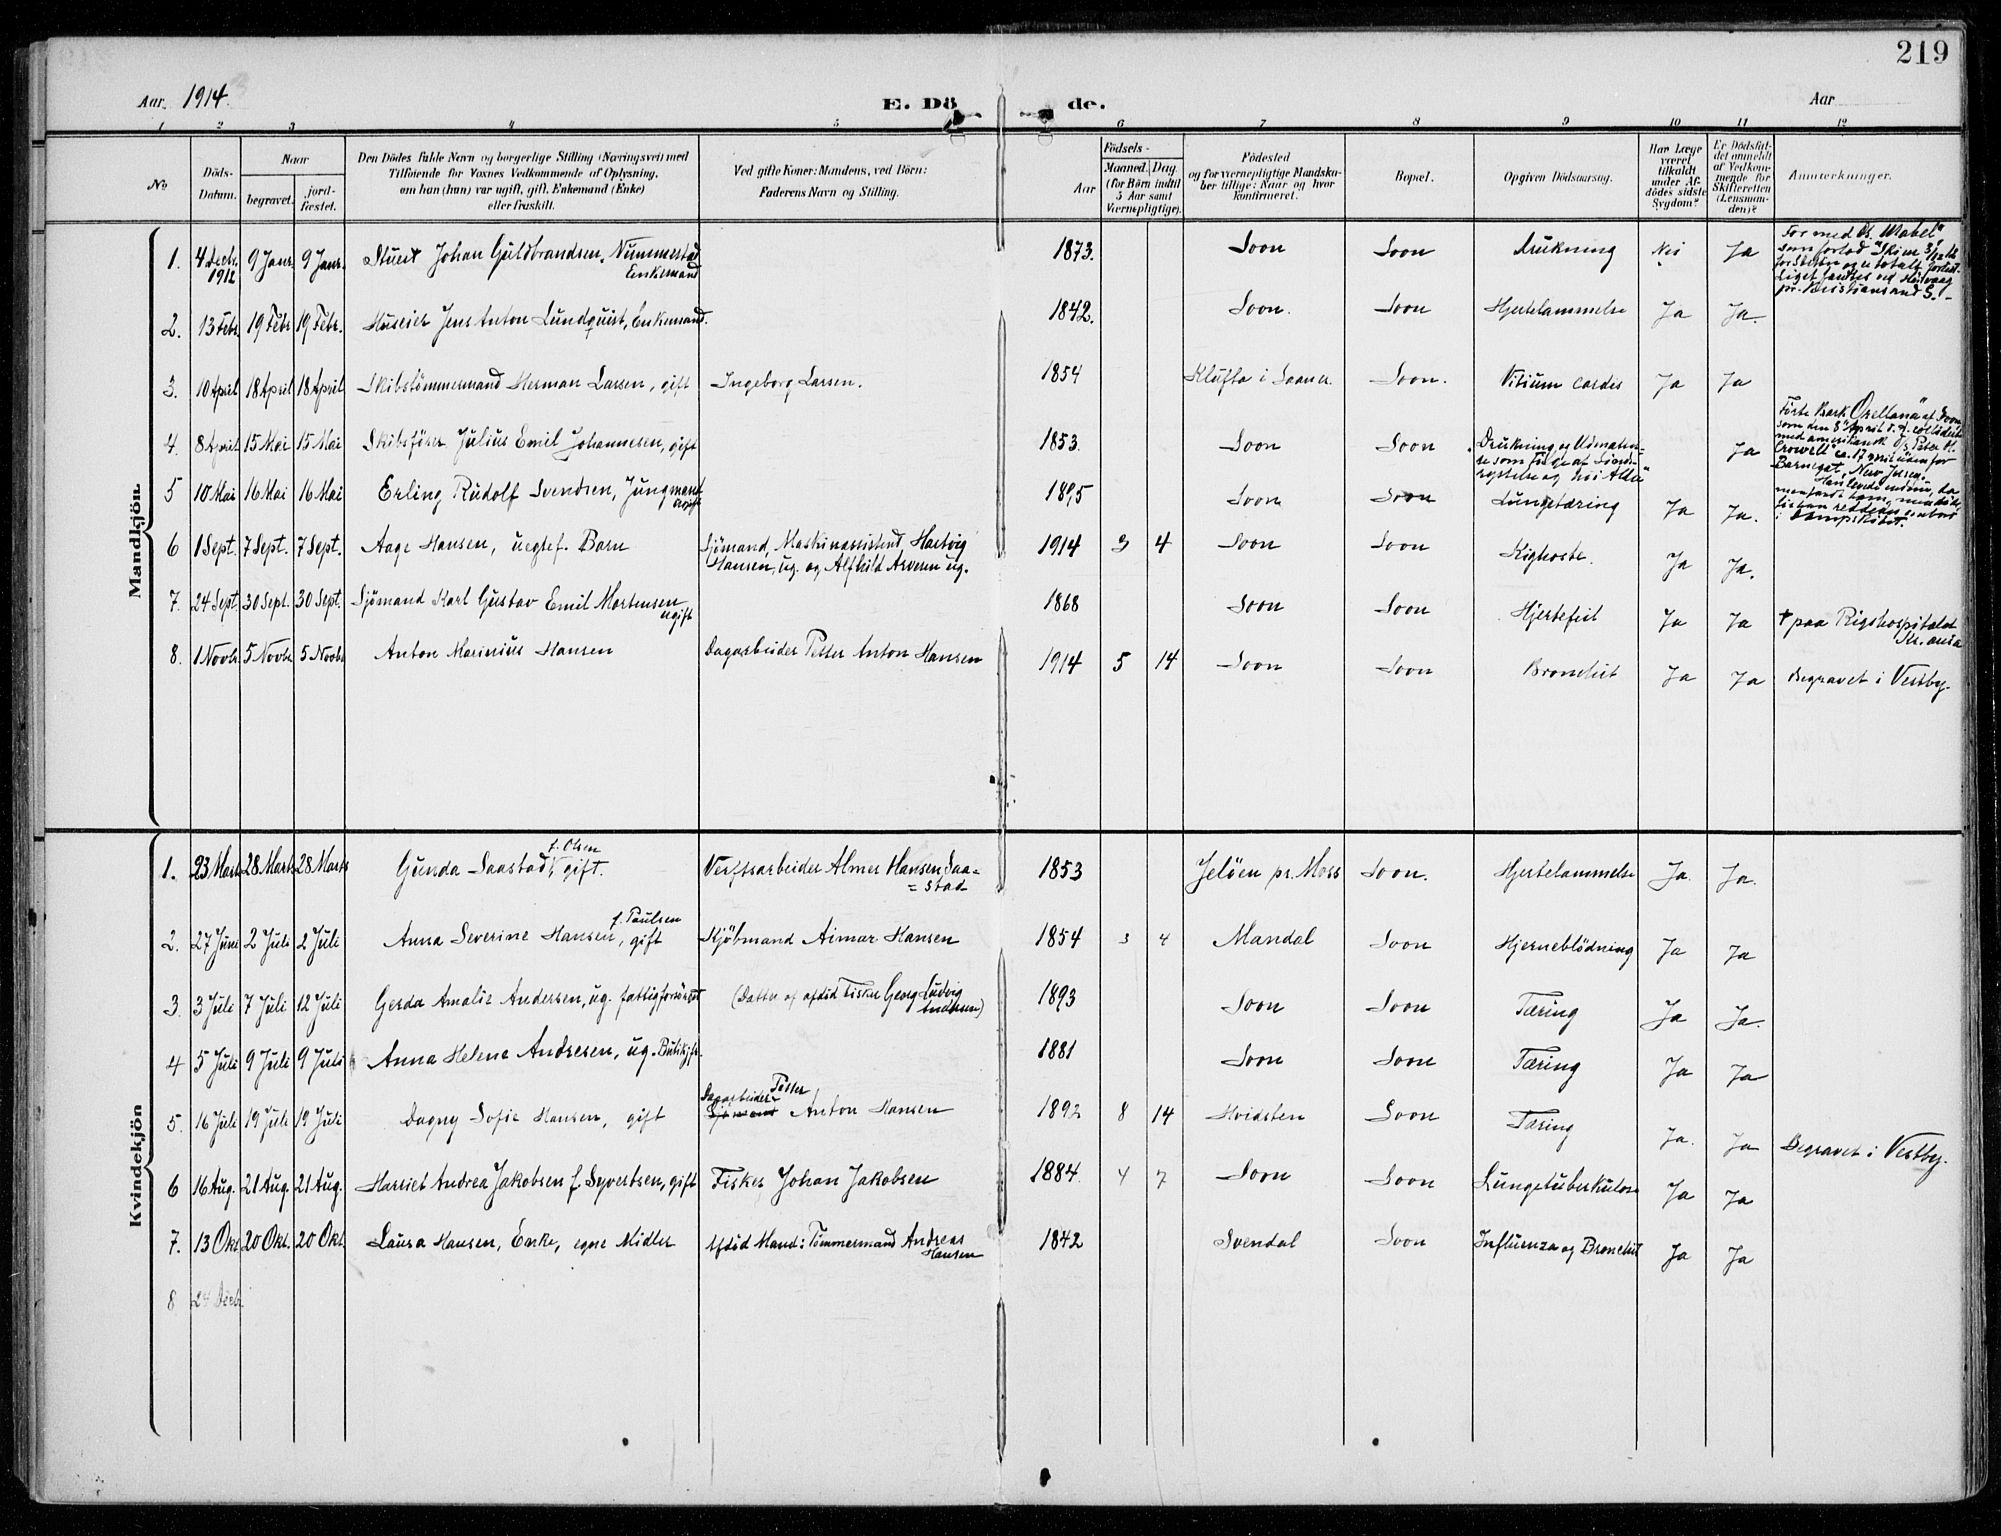 219
Aar 1914.
E. Dö de.
Aar
1 2 3 4 5 6 7 8 9 10 11 12
No
Döds-
Datum.
Naar
begravet.
jord-
fæstet.
Den Dödes fulde Navn og borgerlige Stilling (Næringsvei) med
Tilföiende for Voxnes Vedkommende af Oplysning,
om han (hun) var ugift, gift, Enkemand (Enke)
eller fraskilt.
Ved gifte Koner: Mandens, ved Börn:
Faderens Navn og Stilling.
Födsels-
Aar
Maaned. Dag.
(for Börn indtil
5 Aar samt
Værnepligtige).
Födested
og for værnepligtige Mandska-
ber tillige: Naar og hvor
konfirmeret.
Bopæl.
Opgiven Dödsaarsag.
Har Læge
været
tilkaldt
under Af-
dödes sidste
Sygdom?
Er Dödsfal-
det anmeldt
af Vedkom-
mende for
Skifteretten
(Lensman-
den)?
Anmærkninger.
Mandkjön.
1. 4 Decbr. 1912 9 Janr. 9 Janr. Stuert Johan Guldbrandsen Nummestad Enkemand 1873. Soon Soon Drukning Nei Ja
For med Sk. "Mabel"
som forlod "Skien 3/12 12
totalt forlist.
Liget fandtes ved
pr. Kristiansand S.
2. 13 Febr. 19 Febr. 19 Febr. Huseier Jens Anton Lundquist, Enkemand. 1842. Soon. Soon Hjertelammelse Ja Ja.
3. 10 April 18 April 18 April Skibstömmermand Herman Larsen, gift Ingeborg Larsen. 1854 Klufta i Saaner Soon. Vitium cordis Ja Ja
4 8 April 15 Mai 15 Mai Skibsförer Julius Emil Johannesen, gift 1853. Soon Soon "Drukning og Udmattel-
se som fölge af
og höi Alder" Ja
Förte Bark "Orellana" af Soon
som den 8 April d. A. kolliderte
med amerikansk S/S Peter H.
Crowell ca. 17 mil udenfor
Barnegat, New Jersey.
Han levede endnu, da
man fandt ham, men döde
för han reddedes ombord
i Dampskibet.
5 10 Mai 16 Mai 16 Mai Erling Rudolf Svendsen, Jungmand ugift 1895 Soon Soon Lungetæring Ja Ja.
6 1 Sept. 7 Sept. 7 Sept. Aage Hansen, uegtef. Barn Sjömand, Maskinassistend Hartvig
Hansen, ug. og Alfhild Arvesen ug. 1914 3 4 Soon Soon Kighoste. Ja Ja.
7. 24 Sept. 30 Sept. 30 Sept. Sjömand Karl Gustav Emil Mortensen ugift 1868 Soon Soon Hjertefeil Ja Ja † paa Rigshospitalet
Kr.ania
8. 1 Novbr 5 Novbr 5 Novbr Anton Marinius Hansen Dagarbeider Petter Anton Hansen 1914 5 14 Soon Soon Bronchit Ja Ja Begravet i Vestby.
Kvindekjön
1. 23 Marts 28 Marts 28 Marts Gunda Saastad f. Olsen, gift. Verftsarbeider Almer Hansen Saa=
=stad 1853 Jelöen pr. Moss Soon. Hjertelammelse Ja. Ja.
2. 27 Juni 2 Juli 2 Juli Anna Severine Hansen f. Paulsen, gift Kjöbmand Aimar Hansen 1854 3 4 Mandal Soon Hjerneblödning Ja Ja
3. 3 Juli 7 Juli 12 Juli Gerda Amalie Andersen, ug. fattigforsörget (Datter af afdöd Fisker Georg Ludvig
Andersen) 1893 Soon Soon Tæring Ja Ja.
4 5 Juli 9 Juli 9 Juli Anna Helene Andresen, ug. Butikjfr. 1881 Soon Soon Tæring Ja Ja
5. 16 Juli 19 Juli 19 Juli Dagny Sofie Hansen, gift Dagarbeider Petter
Sjömand Anton Hansen 1892 8 14 Hvidsten Soon Tæring Ja. Ja Begravet i Vestby.
6 16 Aug. 21 Aug. 21 Aug. Harriet Andrea Jakobsen f. Syvertsen, gift Fisker Johan Jakobsen 1884. 4 7 Soon Soon Lungetuberkulose Ja Ja
7. 13 Okt. 20 Okt. 20 Okt. Laura Hansen, Enke, egne Midler Afdöd Mand: Tömmermand Andreas
Hansen 1842 Svendal Soon Influenza og Bronchit Ja Ja
8 24 Decbr.